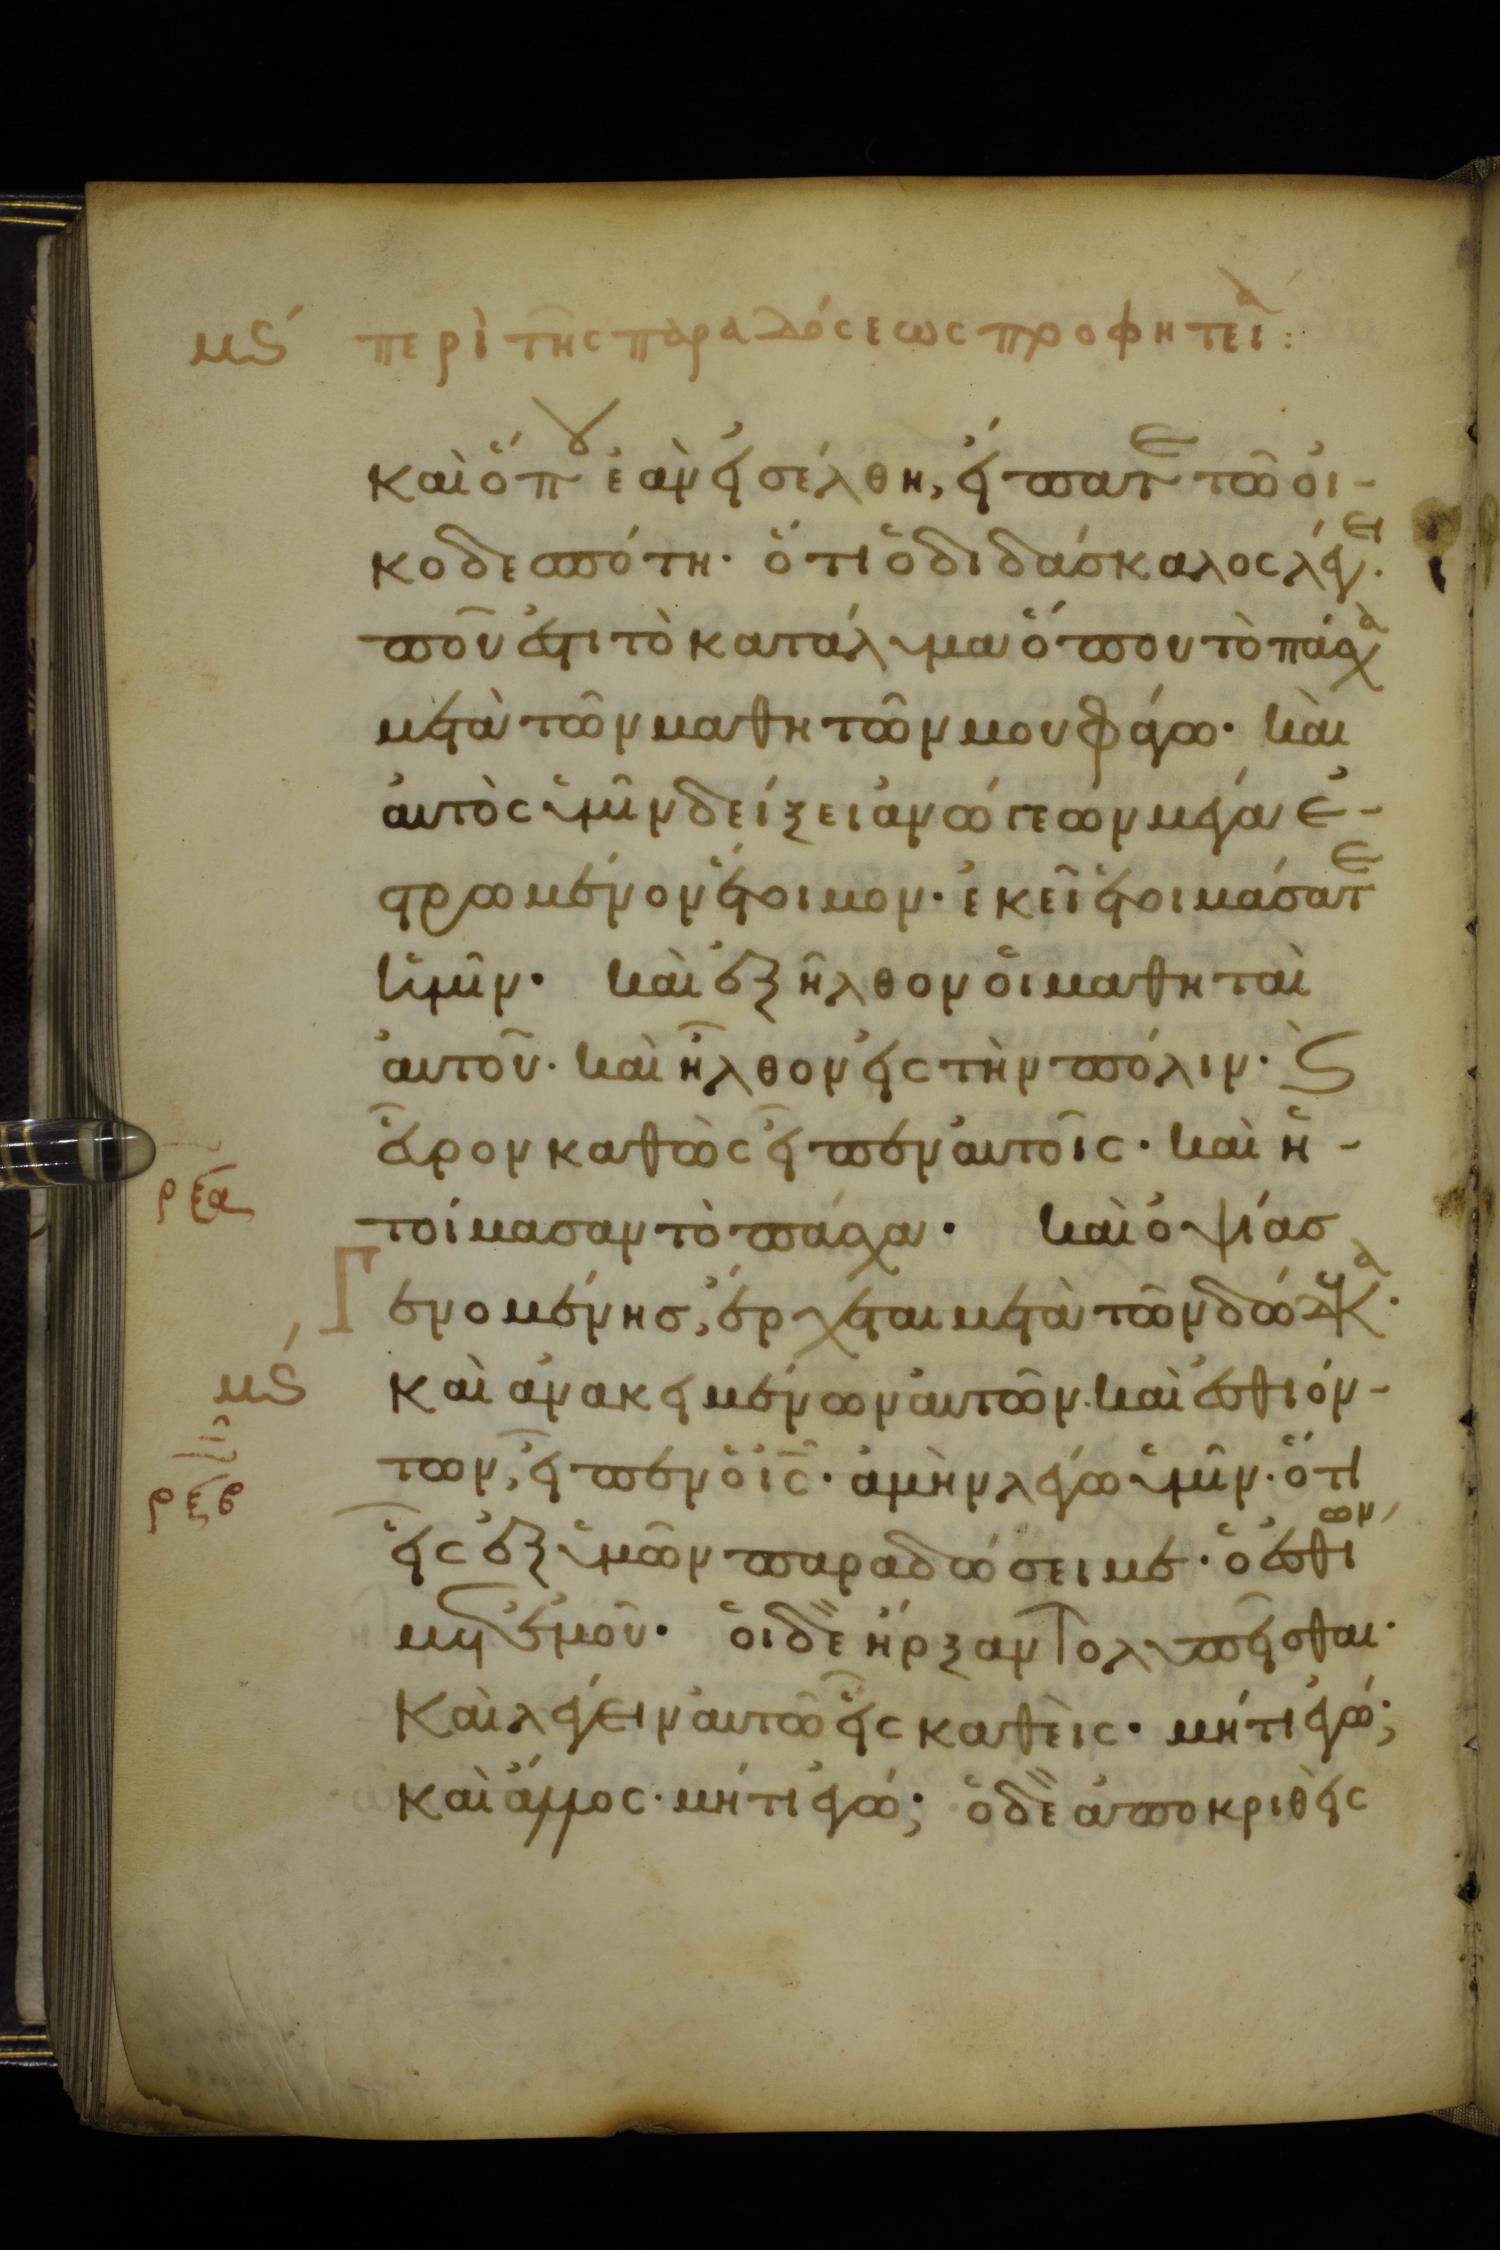 μϛʹ περὶ τῆς παραδόσεως προφητεία:
καὶ ὅπου ἐὰν εἰσέλθη, εἴπατε τῶ οἰ-
κοδεσπότη· ὅτι ὁ διδάσκαλος λέγει·
ποῦ ἐστι τὸ κατάλυμα ὅπου τὸ πάσχα
μετὰ τῶν μαθητῶν μου φάγω· καὶ
αὐτὸς ὑμῖν δείξει ἀνώγεων μέγα ἐ-
στρωμένον ἕτοιμον· ἐκεῖ ἑτοιμάσατε
ἡμῖν· καὶ ἐξῆλθον οἱ μαθηταὶ
αὐτοῦ· καὶ ἦλθον εἰς τὴν πόλιν· ϗ
εὗρον καθὼς εἶπεν αὐτοῖς· καὶ ἡ-
ρξα τοίμασαν τὸ πάσχα· καὶ ὀψίασ
γενομένησ, ἔρχεται μετὰ τῶν δώδεκα·
μϛʹ καὶ ἀνακειμένων αὐτῶν· καὶ ἐσθιόν-
των, εἶπεν ὁ ις· ἀμὴν λέγω ὑμῖν· ὅτι
ρξβ εἷς ἐξ ὑμῶν παραδώσει με· ὁ ἐσθίων
μετ' ἐμοῦ· οἱ δὲ ἤρξαντο λυπεῖσθαι·
καὶ λέγειν αὐτῶ εἷς καθεὶς· μήτι ἐγώ;
καὶ ἄλλος· μήτι ἐγώ; ὁ δὲ ἀποκριθεὶς